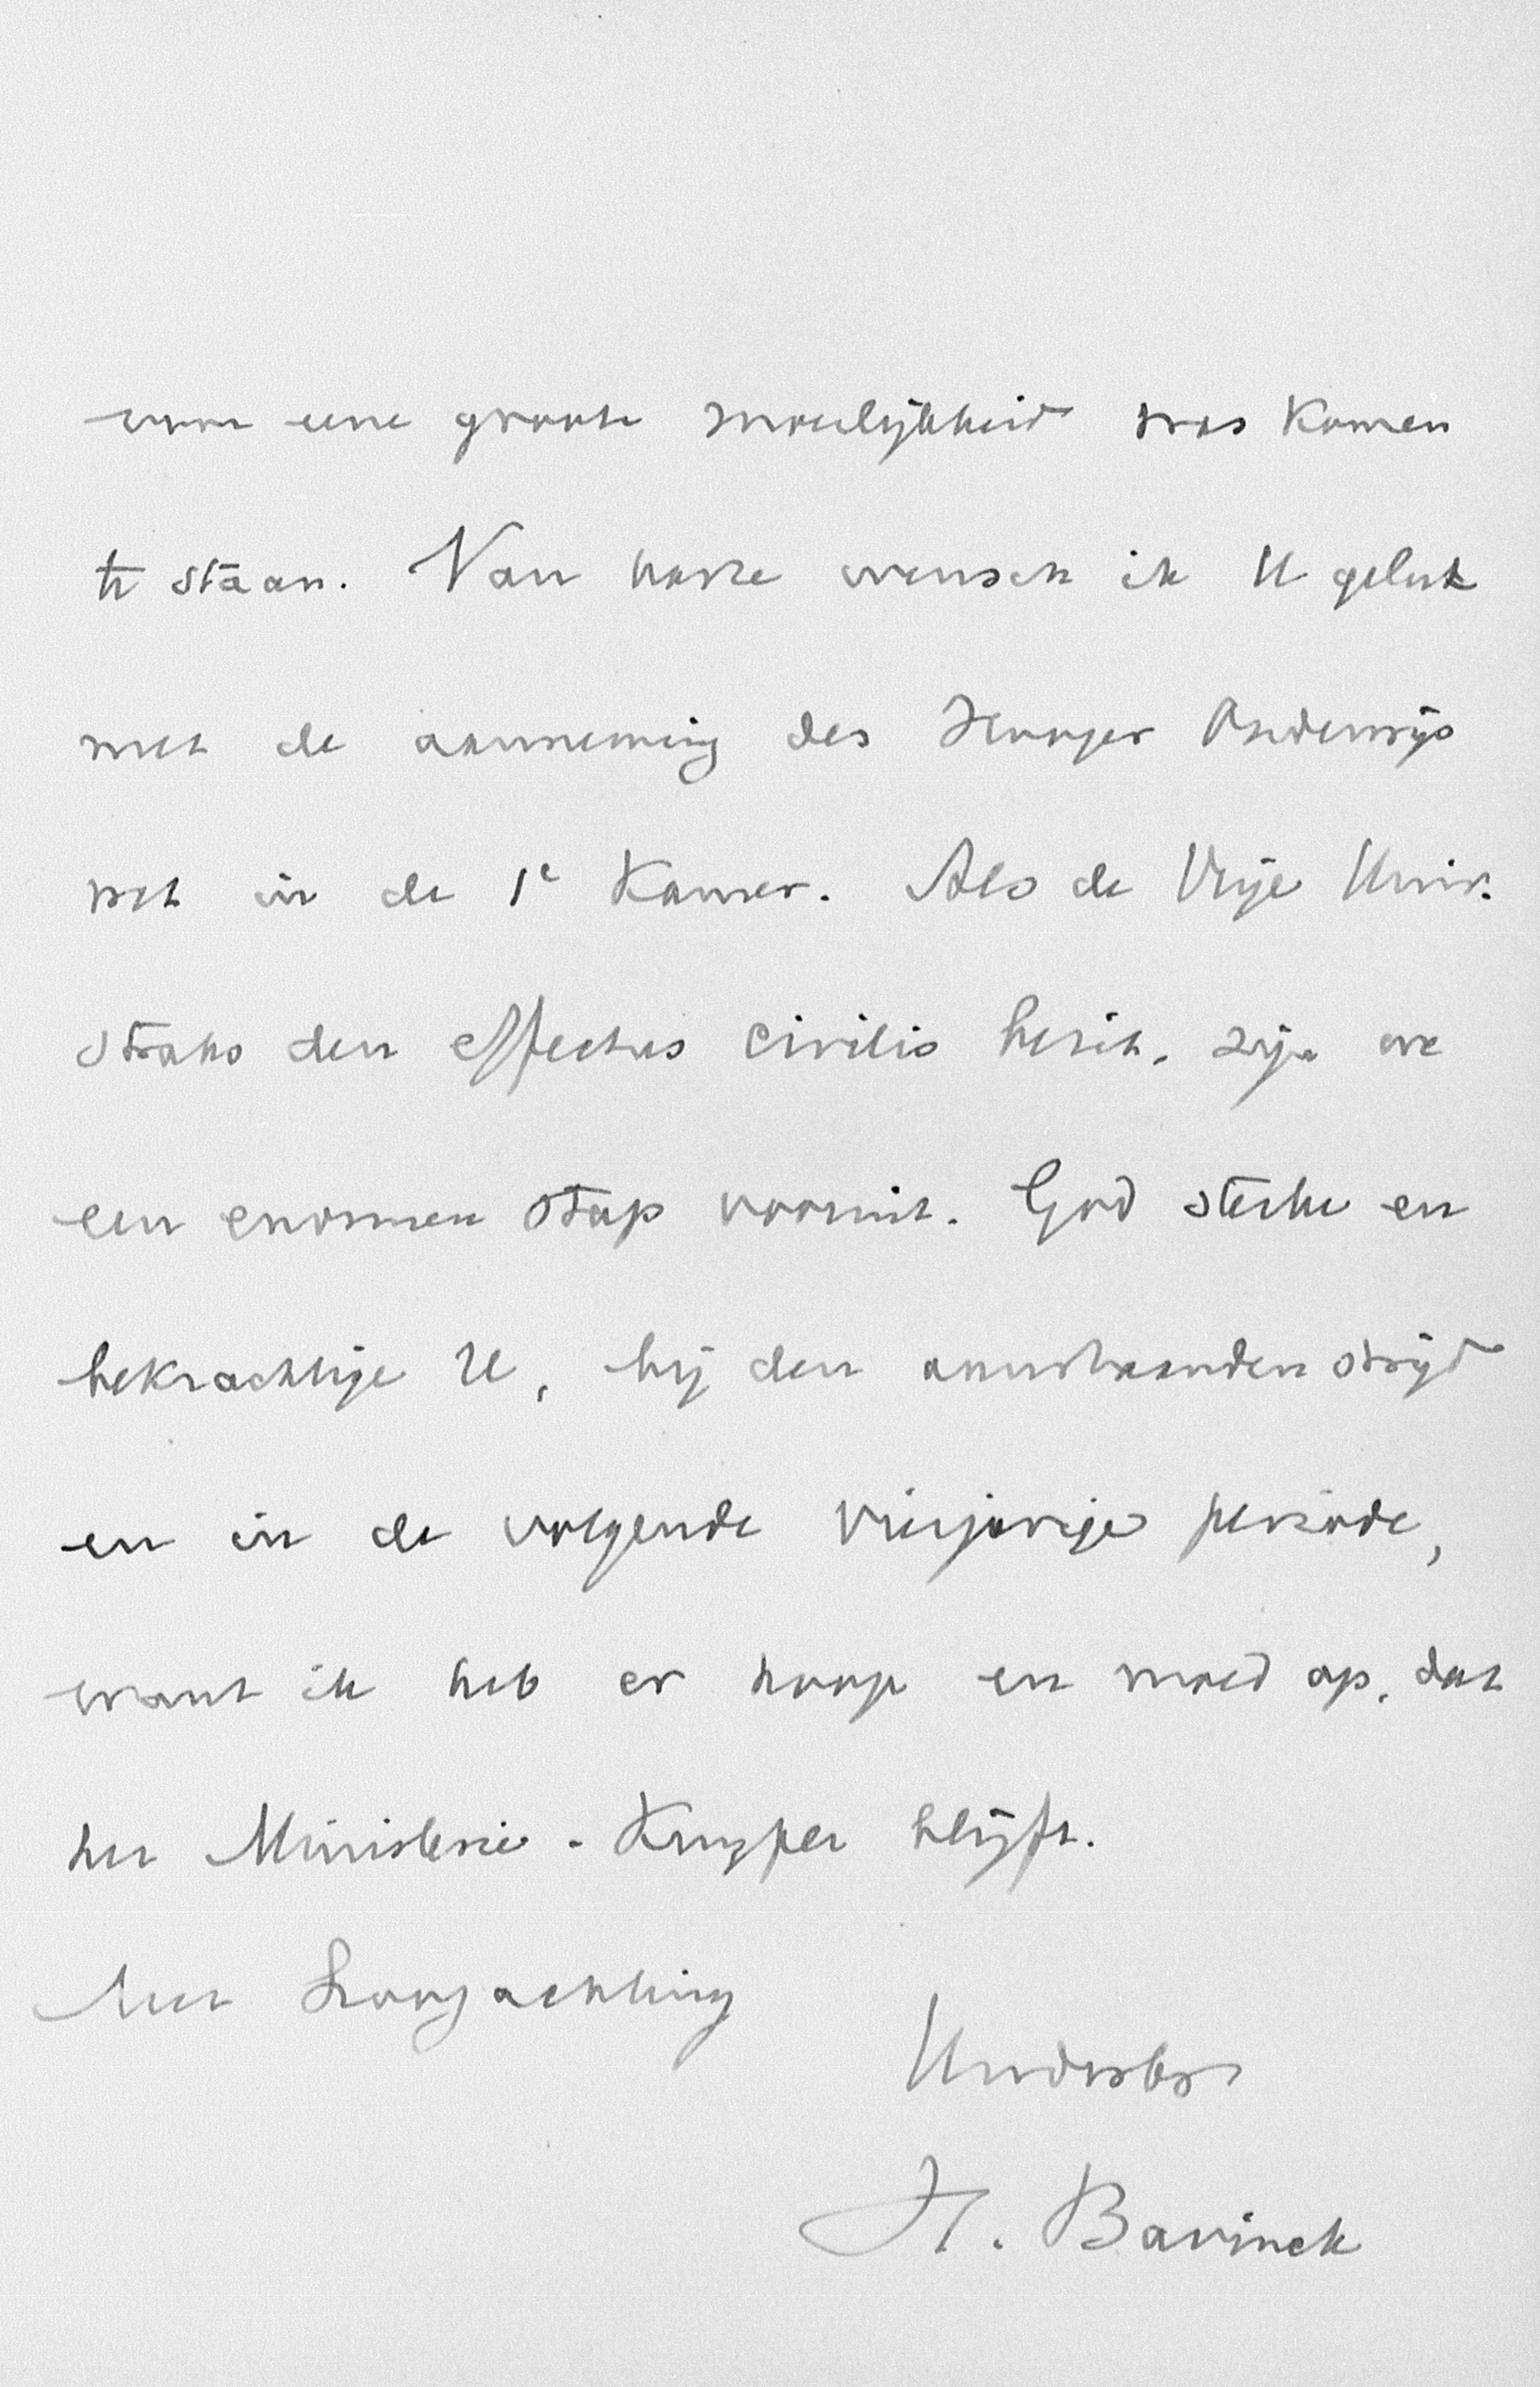 voor eene groote moeilijkheid was komen
te staan. Van harte wensch ik U geluk
met de aanneming des Hooger Onderwijs
wet in de 1e Kamer. Als de Vrije Univ.
straks den effectus civilis bezit, zijn we
een enormen stap vooruit. God sterke en
bekrachtige U, bij den aanstaanden strijd
en in de volgende vierjarige periode,
want ik heb er hoop en moed op, dat
het Ministerie-Kuyper blijft.
Met hoogachting
H. Bavinck